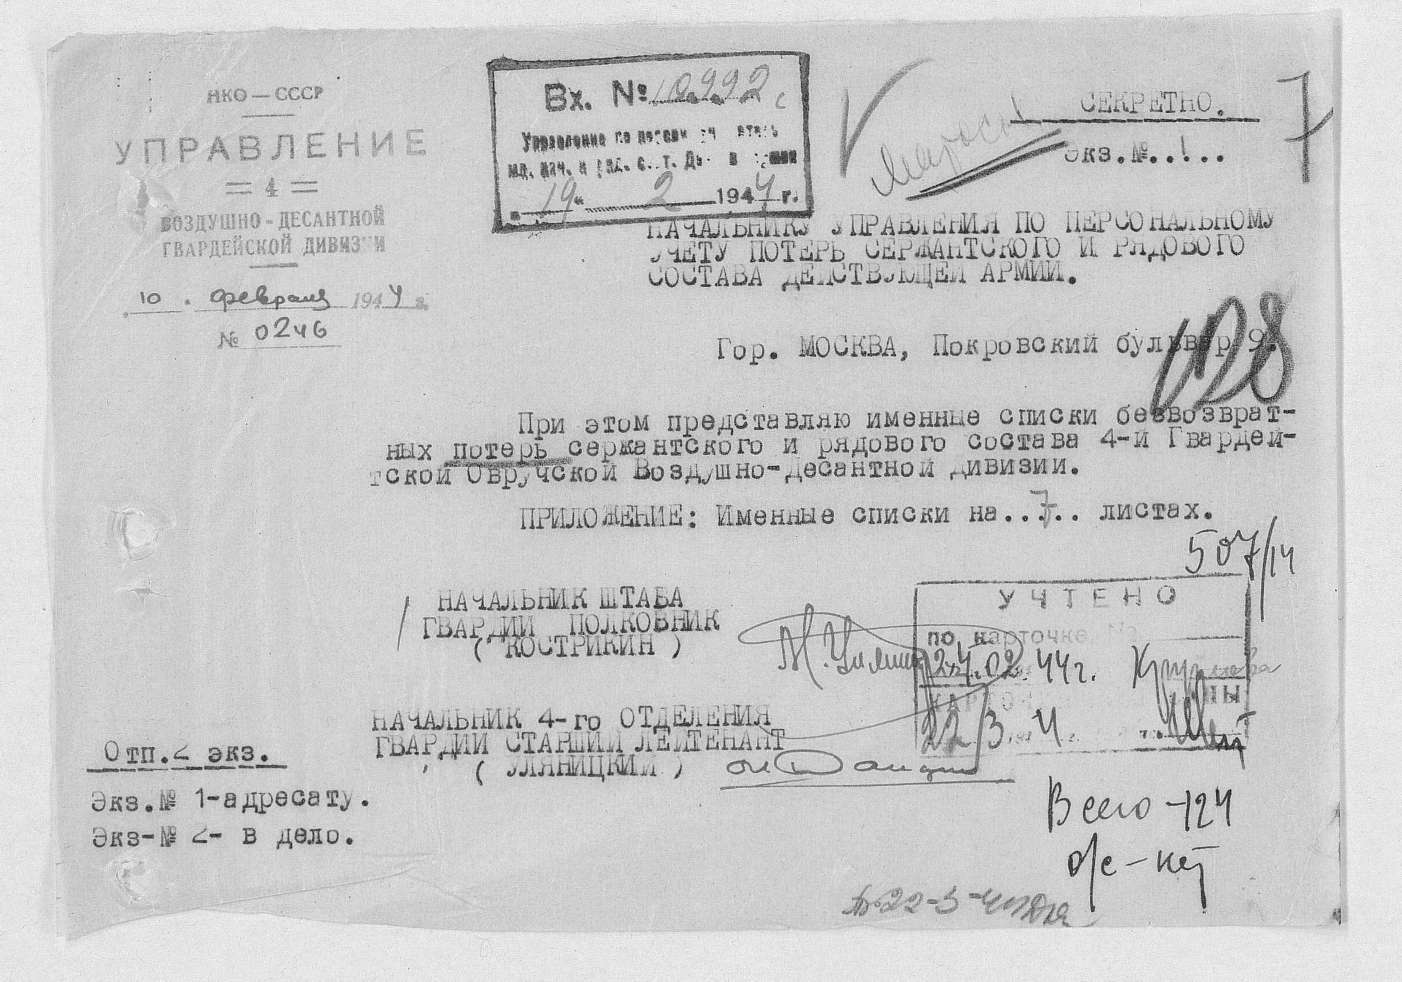 НКО — СССР
УПРАВЛЕНИЕ
= 4 =
ВОЗДУШНО-ДЕСАНТНОЙ
ГВАРДЕЙСКОЙ ДИВИЗИИ
10. февраля 1944 г.
№ 0246
Вх. № 10992 с
Управление по
мл. нач. и ряд.
"19" 2 1944 г.
СЕКРЕТНО.
Экз.№..1..
7
НАЧАЛЬНИКУ УПРАВЛЕНИЯ ПО ПЕРСОНАЛЬНОМУ
УЧЕТУ ПОТЕРЬ СЕРЖАНТСКОГО И РЯДОВОГО
СОСТАВА ДЕЙСТВУЮЩЕЙ АРМИИ.
Гор. МОСКВА, Покровский бульвар 9.
128
При этом представляю именные списки безвозврат-
ных потерь сержантского и рядового состава 4-й Гвардей-
ской Овручской Воздушно-десантной дивизии.
ПРИЛОЖЕНИЕ: Именные списки на..7.. листах.
507/14
НАЧАЛЬНИК ШТАБА
ГВАРДИИ ПОЛКОВНИК
( КОСТРИКИН )
УЧТЕНО
по карточке №
24.02.44г.
22/3 4
НАЧАЛЬНИК 4-го ОТДЕЛЕНИЯ
ГВАРДИИ СТАРШИЙ ЛЕЙТЕНАНТ
( УЛЯНИЦКИЙ )
Отп.2 экз.
Экз.№ 1-адресату.
Экз-№ 2- в дело.
Всего - 124
о/с - нет
22-3-4